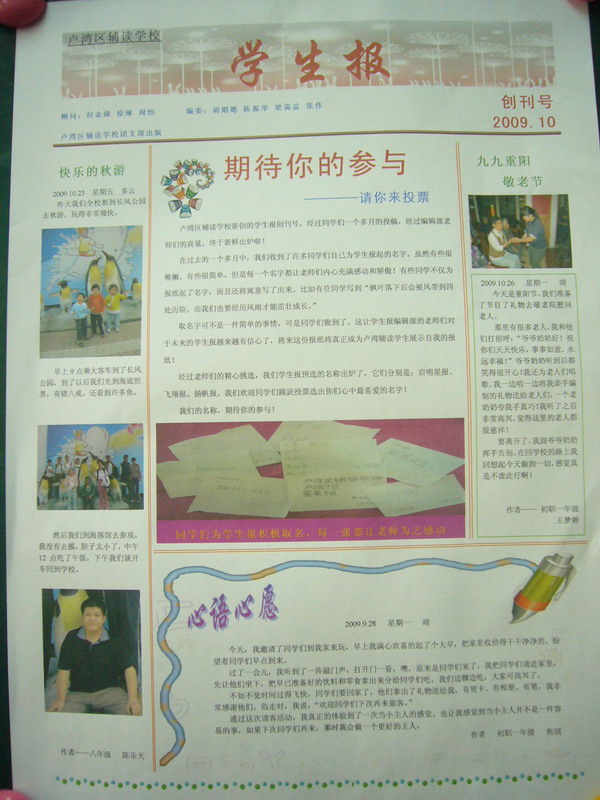 卢湾区辅读学校
学生报
顾问：何金娣 徐琳 周怡
编委：胡娟旭 陈振华 梁茵茵 张伟
卢湾区辅读学校团支部出版
创刊号
2009.10
快乐的秋游
2009.10.23 星期五 多云
昨天我们全校都到长风公园
去秋游，玩得非常痛快。
早上9点乘大客车到了长风
公园，到了以后我们先到海底世
界，有猪八戒，还看到许多鱼。
然后我们到海豚馆去参观，
我没有去摸，胆子太小了，中午
12点吃了午饭，下午我们就开
车回到学校。
作者——八年级 陈乐天
期待你的参与
————请你来投票
卢湾区辅读学校新创的学生报创刊号，经过同学们一个多月的投稿，经过编辑部老
师们的商量，终于新鲜出炉啦！
在过去的一个多月中，我们收到了许多同学们自己为学生报起的名字，虽然有些很
稚嫩，有些很简单，但是每一个名字都让老师们内心充满感动和骄傲！有些同学不仅为
报纸起了名字，而且还将寓意写了出来，比如有位同学写到“枫叶落下后会被风带到四
处历险，而我们也要经历风雨才能茁壮成长。”
取名字可不是一件简单的事情，可是同学们做到了，这让学生报编辑部的老师们对
于未来的学生报越来越有信心了，将来这份报纸将真正成为卢湾辅读学生展示自我的报
纸！
经过老师们的精心挑选，我们学生报预选的名称出炉了，它们分别是：启明星报、
飞翔报、扬帆报。我们欢迎同学们踊跃投票选出你们心中最喜爱的名字！
我们的名称，期待你的参与！
同学们为学生报积极取名，每一张都让老师为之感动
九九重阳
敬老节
2009.10.26 星期一 晴
今天是重阳节，我们准备
了节目了礼物去敬老院慰问
老人。
那里有很多老人，我和他
们打招呼：“爷爷奶奶好！祝
你们天天快乐，事事如意，永
远幸福！”爷爷奶奶听到后都
笑得很开心！我还为老人们唱
歌，我一边唱一边将我亲手编
制的礼物送给老人们，一个老
奶奶夸我手真巧！我听了之后
非常高兴，觉得这里的老人都
很慈祥！
要离开了，我跟爷爷奶奶
挥手告别，在回学校的路上我
回想起今天做的一切，感觉真
是不虚此行啊！
作者—— 初职一年级
王梦婷
心语心愿
2009.9.28 星期一 晴
今天，我邀请了同学们到我家来玩，早上我满心欢喜的起了个大早，把家里收拾得干干净净的，盼
望着同学们早点到来。
过了一会儿，我听到了一阵敲门声，打开门一看，噢，原来是同学们来了，我把同学们请进家里，
先让他们坐下，把早已准备好的饮料和零食拿出来分给同学们吃，我们边聊边吃，大家可高兴了。
不知不觉时间过得飞快，同学们要回家了，他们拿出了礼物送给我，有贺卡、有相册、有笔，我非
常感谢他们，临走时，我说，“欢迎同学们下次再来做客。”
通过这次请客活动，我真正的体验到了一次当小主人的感觉，也让我感觉到当小主人并不是一件容
易的事，如果下次同学们再来，那时我会做一个更好的主人。
作者 初职一年级 焦琪